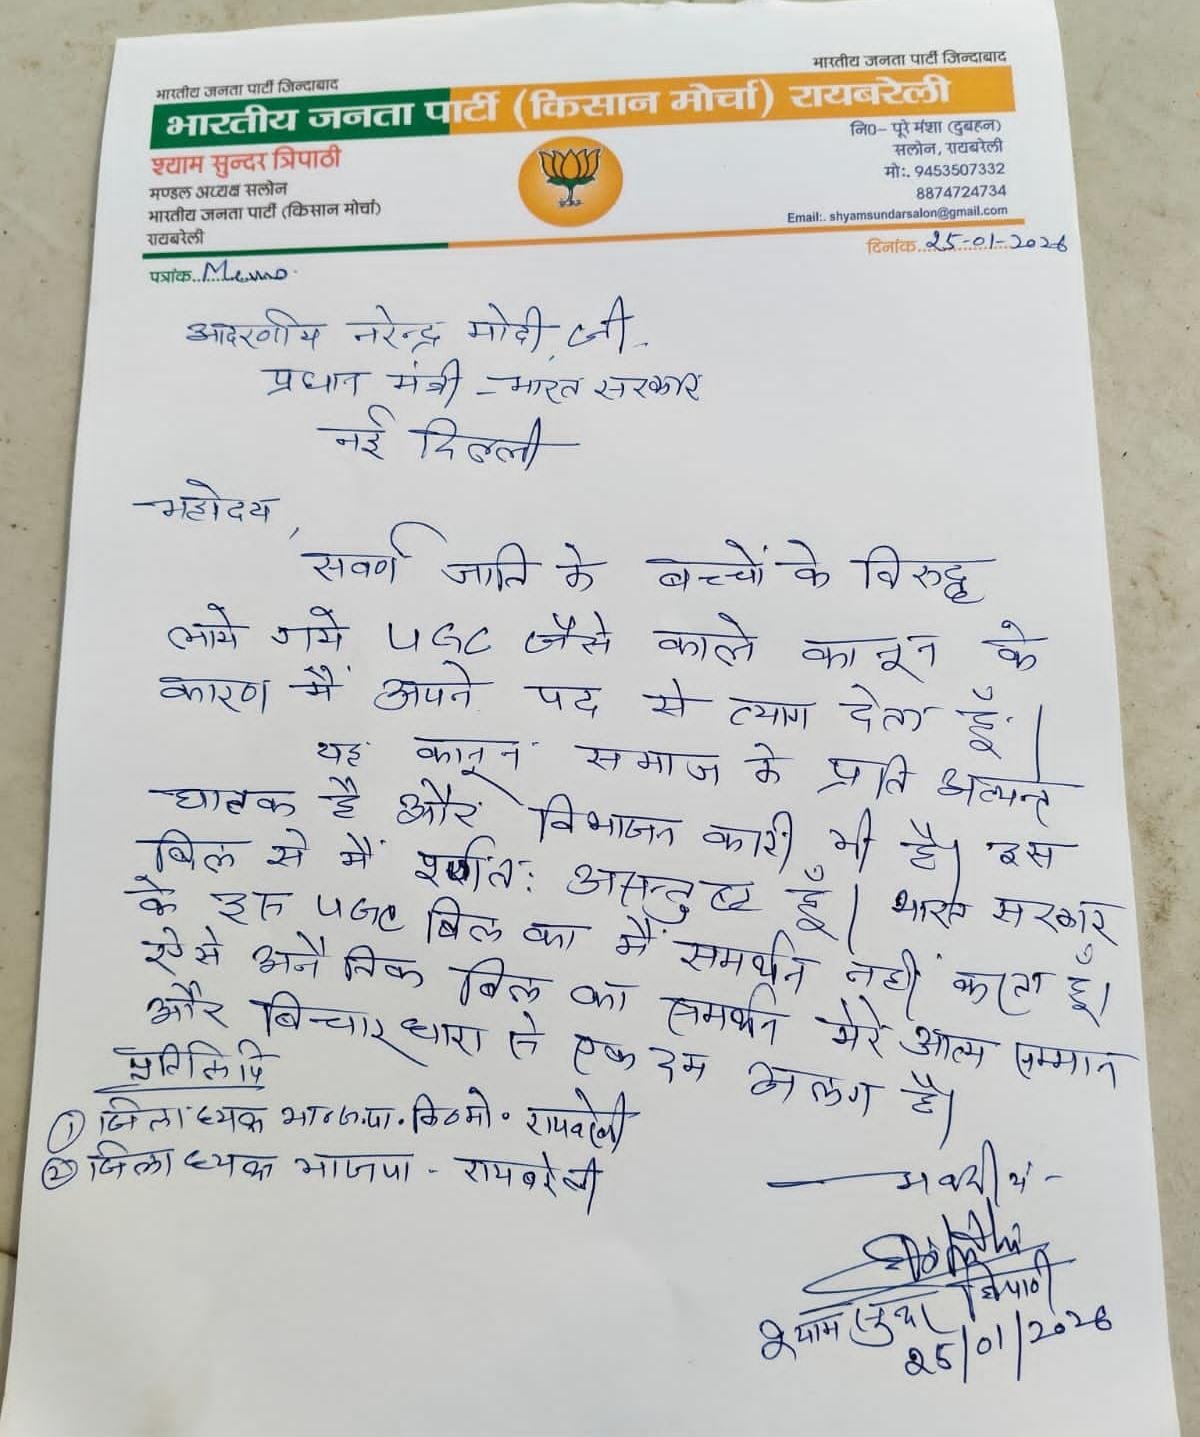 भारतीय जनता पार्टी जिन्दाबाद
भारतीय जनता पार्टी जिन्दाबाद
भारतीय जनता पार्टी (किसान मोर्चा) रायबरेली
श्याम सुन्दर त्रिपाठी
मण्डल अध्यक्ष सलोन
भारतीय जनता पार्टी (किसान मोर्चा)
रायबरेली
नि0- पूरे मंशा (दुबहन)
सलोन, रायबरेली
मो:. 9453507332
8874724734
Email:. shyamsundarsalon@gmail.com
पत्रांक..Memo.
दिनांक..25-01-2026
आदरणीय नरेन्द्र मोदी जी.
प्रधान मंत्री - भारत सरकार
नई दिल्ली
महोदय,
सवर्ण जाति के बच्चों के विरुद्ध
लाये गये UGC जैसे काले कानून के
कारण मैं अपने पद से त्याग देता हूँ।
यह कानून समाज के प्रति अत्यन्त
घातक है और विभाजन कारी भी है। इस
बिल से मैं पूर्णतः असन्तुष्ट हूँ। भारत सरकार
के इस UGC बिल का मैं समर्थन नहीं करता हूँ।
ऐसे अनैतिक बिल का समर्थन मेरे आत्म सम्मान
और विचारधारा से एकदम अलग है।
प्रतिलिपि
① जिलाध्यक्ष भा०ज.पा. कि०मो. रायबरेली
② जिलाध्यक्ष भाजपा - रायबरेली
भवदीय -
श्याम सुन्दर त्रिपाठी
25/01/2026